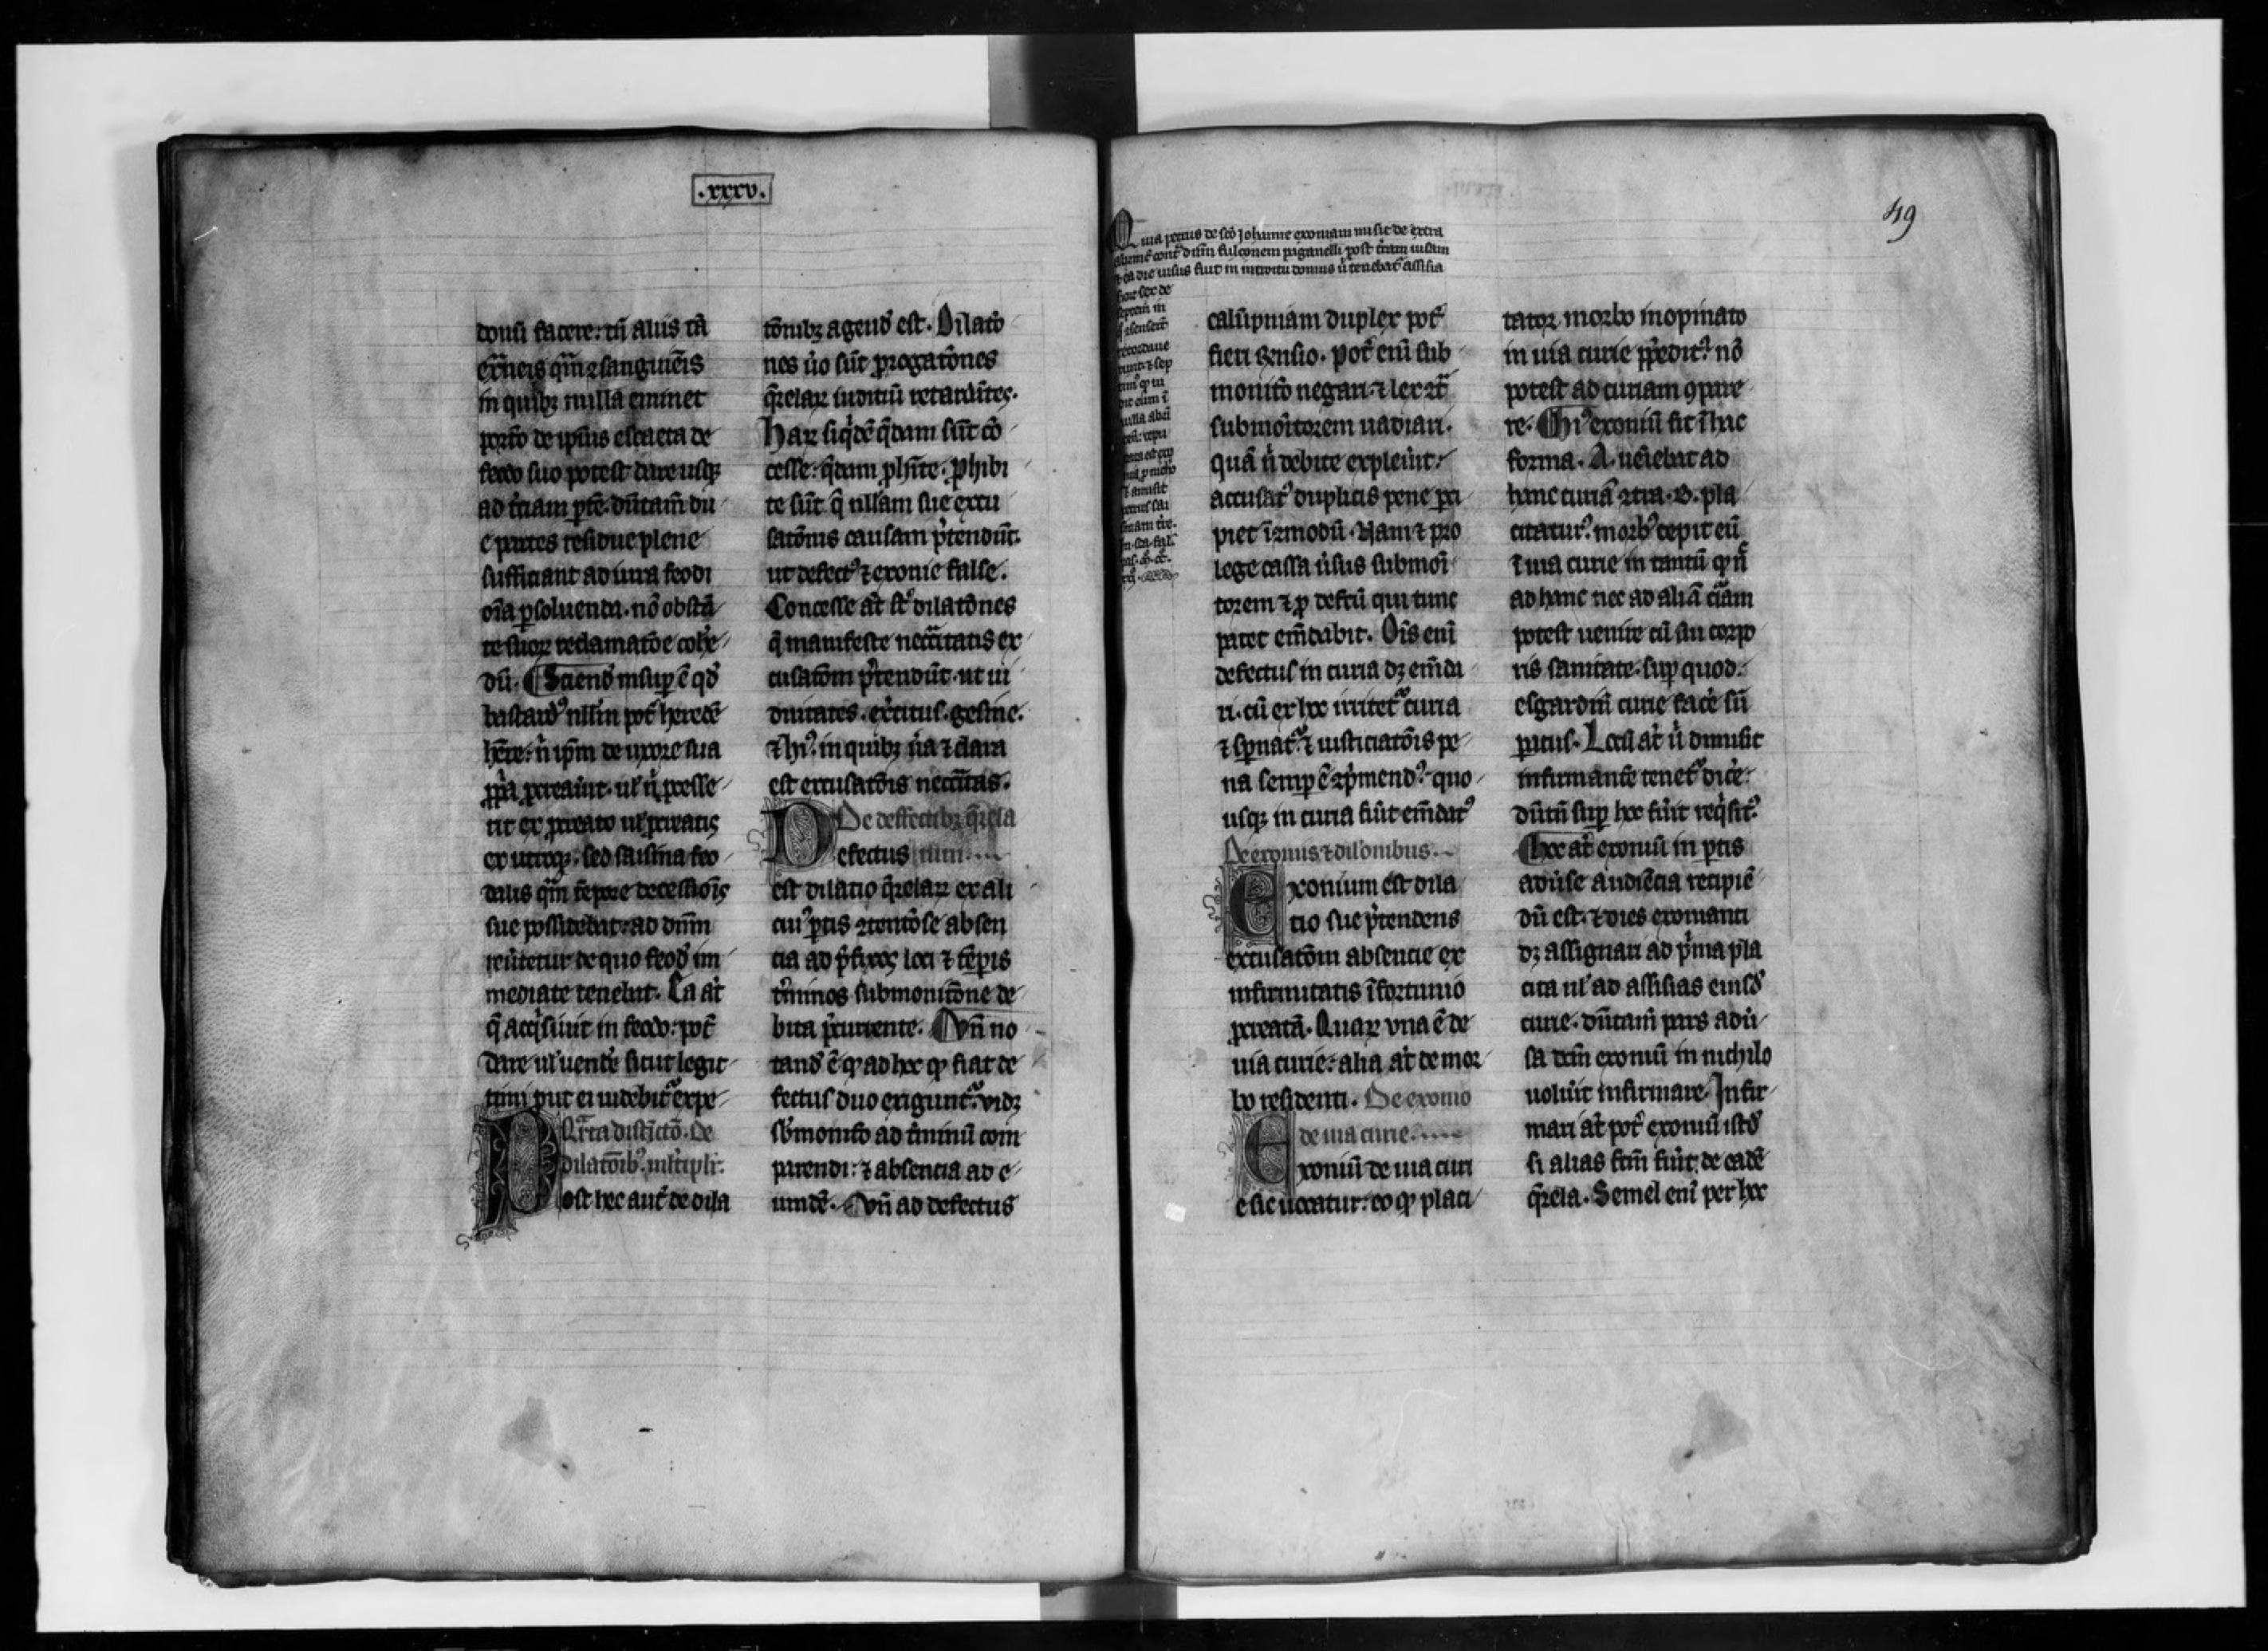 .xxxv.
donũ facere: tñ aliis tã
ex̃neis qͣm ɔsanguĩeis
in quibꝫ nulla eminet
porťo de ip̃ius escaeta de
feodo suo potest dare usqꝫ
ad t̾ciam pťe. dũtam̃ du
e partes residue plene
sufficiant ad iura feodi
oĩa ꝑsoluenda. nõ obstã
te suoꝝ reclamatõe cohe
dũ. Sciend̾ insuꝑ ẽ qd̾
bastard⁹ nllm̃ poť heredẽ
hẽre: ñ ip̃m de uxore sua
ꝓpͥa ꝓcreaũit. ul̾ ñ ꝓcesse
rit ex ꝓcreato ul̾ ꝓcreatis
ex utroqꝫ. sed saisina feo
dalis qͣm tẽpore decessiõis
sue possidebat: ad dñm
reũtetur de quo feod̾ im
mediate tenebat. Ea aũt
q̃ acqͥsiuit in feodo: poť
dare ul̾ uendẽ sicut legit
timi put ei uidebiť expe
Qͣrta distĩctõ. de
dilatõib⁹ mltipli.
Post hec aut̾ de dila
tõnibꝫ agend̾ est. Dilatõ
nes ũo sũt ꝓrogatõnes
q̃relaꝝ iuditiũ retardãtes.
Haꝝ siqͥdẽ qͥdam sũt cõ
cesse: qͥdam ꝓhĩte. ꝓhibi
te sũt q̃ nullam sue excu
satõnis causam p̾tendũt.
ut defect⁹ ⁊ exonie false.
Concesse aũt sť dilatõnes
q̃ manifeste necc̃itatis ex
cusatõm p̾tendũt. ut ui
duitates. ex̾citus. gesine.
⁊ hi⁹. in quibꝫ ũa ⁊ clara
est excusatõis necc̃itas.
De deffectibꝫ q̃rela
Defectus rum....
est dilatio q̃relaꝝ ex ali
cui⁹ ꝑtis ɔtentõse absen
cia ad p̾fixos loci ⁊ tẽpis
t̾minos submonitõne de
bita p̾cunente. Vñ no
tand̾ ẽ qͥ ad hoc qͥ fiat de
fectus duo exigunť. vidꝫ
sb̾monitõ ad t̾minũ com
parendi: ⁊ absencia ad e
undẽ. Vñ ad defectus
49
Quia petrus de scõ Johanne exoniam misit de extra
abrinc̃ cont̾ dñm fulconem paganelli post t̾ciam uisam
⁊ ea die uisus fuit in introitu domus ũ tenebat̾ assisia
calũpniam duplex poť
fieri gensio. Poť eni sub
monitõ negari. ⁊ lex ɔtͣ
submonitorem uadiari.
quã ñ debite expleũit:
accusat⁹ duplicis pene ꝑci
piet ĩɔmodũ. Nam ⁊ pro
lege cassa ũsus submoi
torem ⁊ ꝓ defcũ qui tunc
patet em̃dabit. Oĩs eni
defectus in curia dꝫ em̃da
ri. cũ ex hoc irriteť curia
⁊ spñat̾. ⁊ iusticiatõis pe
na semꝑ ẽ ɔp̾mend⁹. quo
usqꝫ in curia fũit em̃dat⁹
De exoniis ⁊ dil̾onibus.
Exonium est dila
tio sue p̾tendens
excusatõm absencie ex
infirmitatis ĩfortunio
ꝓcreatã. Quaꝝ vna ẽ de
uia curie: alia at̾ de mor
bo residenti. De exonio
de uia curie.....
Exoniũ de uia curi
e sic uocatur: eo qͥ placi
tator morbo inopinato
in uia curie ꝓpedit⁹. nõ
potest ad curiam ɔpare
re. Hi⁹ exoniũ fit ĩ hac
forma. A. ueĩebat ad
hanc curiã ɔtra .B. pla
citatur⁹. morb⁹ cepit eũ
ĩ uia curie in tantũ qͥ ñ
ad hanc nec ad aliã ciãm
potest uenire cũ sui corpo
ris sanitate. suꝑ quod:
esgardiũ curie facẽ sũ
paťus. Loca at̾ ũ dimisit
infirmantẽ teneť dicẽ:
dũm̃ suꝑ hoc fũit reqͥsit⁹.
Hoc at̾ exoniũ in ꝑtis
adũse audiẽcia recipiẽ
dũ est. ⁊ dies exonianti
dꝫ assignari ad pͥma pla
cita ul̾ ad assisias eiusd̾
curie. dũtam̃ pars adũ
sa dcm̃ exoniũ in nichilo
uoluit infirmare. Infir
mari at̾ poť exoniũ istd̾
si alias fcm̃ fũit de eadẽ
q̃rela. Semel eni per hoc